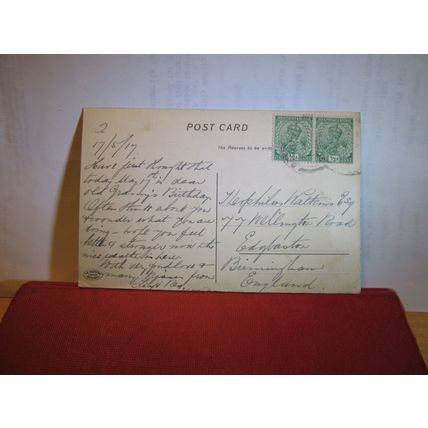 2
POST CARD
The Address to be
17/5/17
Have just thought that
today May 17th is dear
old Granny's Birthday.
Often think about you
& wonder what you are
doing - hope you feel
better & stronger now the
nice weather is here.
With very fond love &
many kisses from
Theophilus Watkins Esq
77 Wellington Road
Edgbaston
Birmingham
England.